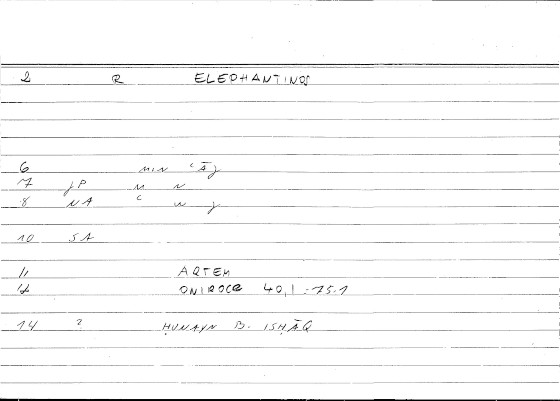 2 R ELEPHANTINOS
6 min ʿāǧ
7 JP M N
8 NA ʿ w j
10 SA
11 ARTEM
12 ONIROCR 40,1 = 75.1
14 ? ḤUNAYN B. ISḤĀQ